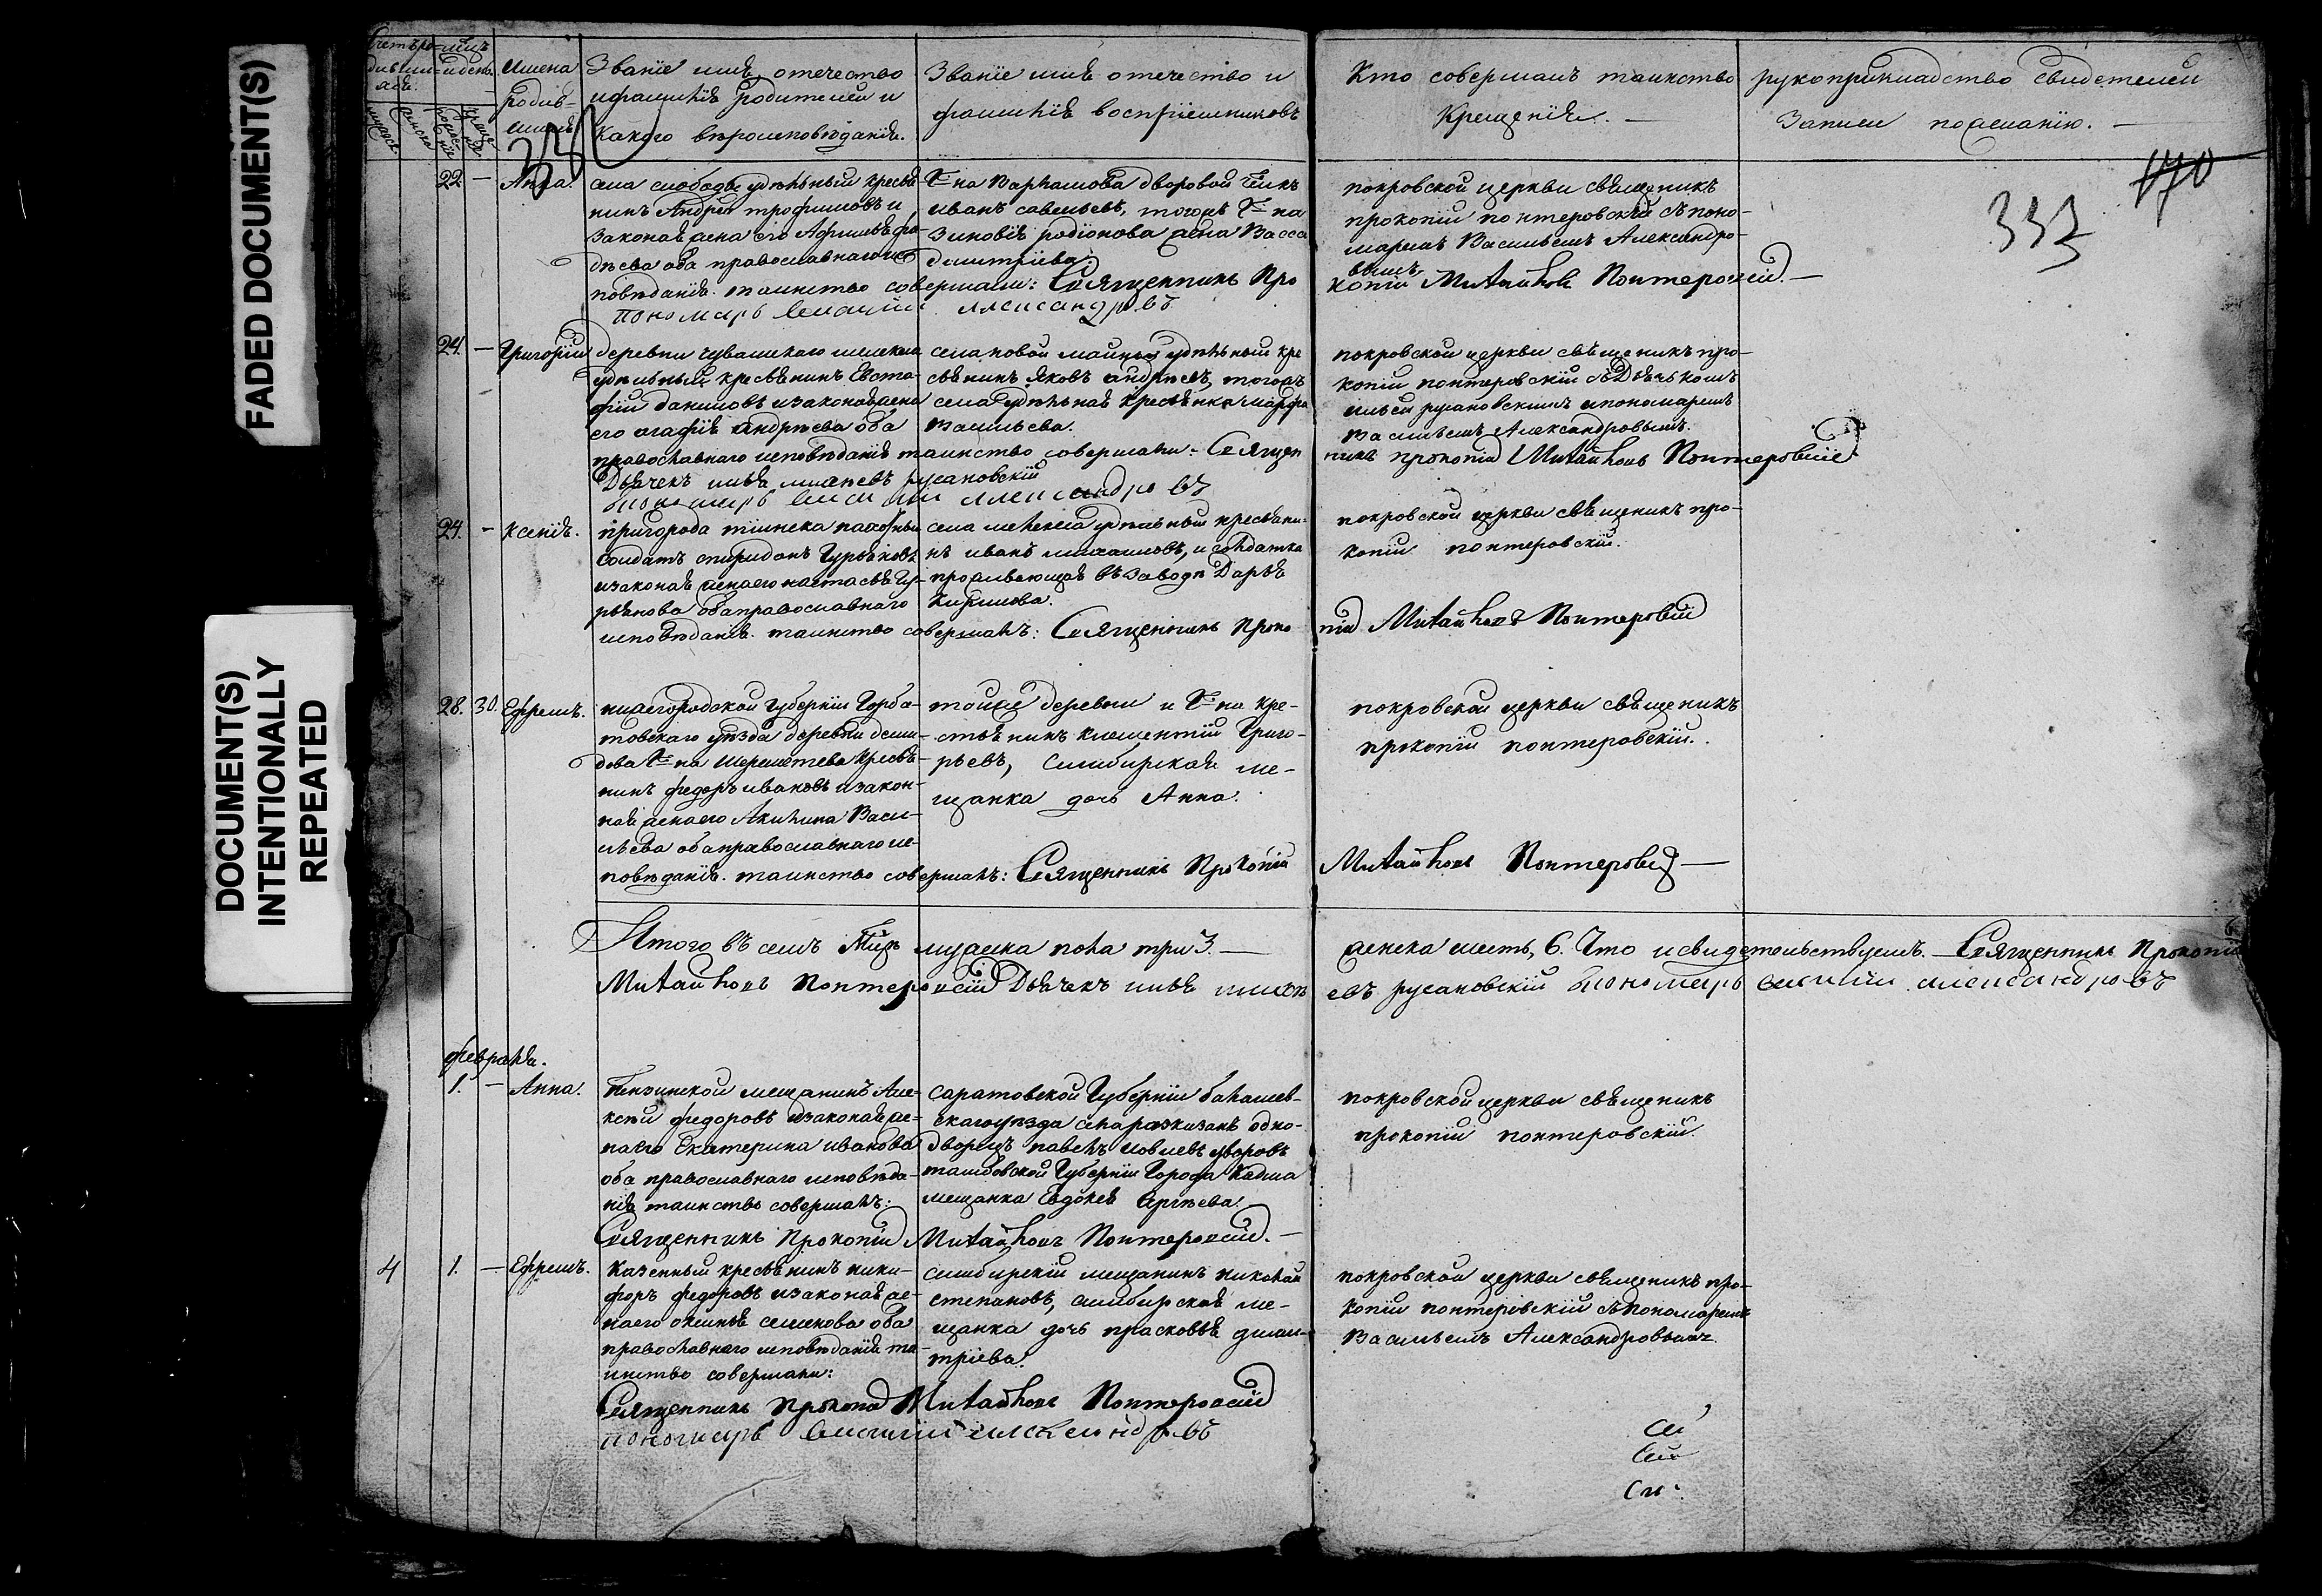 FADED DOCUMENT(S)
DOCUMENT(S)
INTENTIONALLY
REPEATED
Имена
родив-
Званїе имя, отечество
ифамилїя родителей и
какого вѣроисповѣданїя.
Званїе имя отечество и
фамилїя воспрїемниковъ
Кто совершалъ таинство
Крещенїя. —
рукоприкладство свидетелей
Записи пожеланїю. —
337
170
22 — Анна.
села слободы удѣльный кресья
нинъ Андрей трофимовъ и
Законая жена его Афимья фа-
дѣева оба православнаго ис
повѣданїя. таинство совершали: Священникъ Про
пономарь Василий Александровъ
Гна Варламова дворовой
иванъ савельевъ, тогожъ Гна
Зиновїя родїонова жена Васса
дмитрїева.
покровской церкви свяшеникъ
прокопїй понтеровскїй съ поно-
маремъ Васильемъ Александро-
вымъ
копїй Митайловъ Понтеровскїй. —
24. — Григорїй
деревни чувашскаго
удѣльный кресьянинъ Евста-
фїй даниловъ изаконаяжена
его агафїя андрѣева оба
православнаго исповѣданїя таинство совершали: Священ
Дьячекъ илья михѣевъ русановскїй
пономарь Василий Александровъ
села новой майны удѣльный кре
сьянинъ яковъ андрѣевъ, тогожъ
села удѣльная кресьянка марфа
Васильева.
покровской церкви свяшеникъ про-
копїй понтеровскїй съ Дьячькомъ
ильей русановскимъ ипономаремъ
Васильемъ Александровымъ.
никъ прокопїй Митайловъ Понтеровскїй
24. — Ксенїя.
пригорода тїинска
солдатъ спиридонъ Гурьяновъ
изаконая женаего настасья Гу-
рьянова оба православнаго
исповѣданїя. таинство совершалъ: Священникъ Проко
села удѣльный кресьяни-
нъ иванъ михаиловъ, и солдатка
проживающая въ заводѣ Дарья
Кирилова.
покровской церкви свяшеникъ про-
копїй понтеровскїй.
пїй Митайловъ Понтеровскїй
28. 30. Ефремъ.
нижегородской Губернїи Горба-
товскаго уѣзда деревни деми-
дова Гна Шереметева кресья-
нинъ федоръ ивановъ изакон-
ная женаего Акилина Васи-
льева оба православнаго ис-
повѣданїя. таинство совершалъ: Священникъ Прокопїй
тойже деревни и Гна кре-
стьянинъ климентїй Григо-
рьевъ, симбирская ме-
щанка дочь Анна.
покровской церкви свяшеникъ
прокопїй понтеровскїй.
Митайловъ Понтеровскїй —
Итого въ семъ мѣцѣ мужска пола три 3. — женска шесть, 6. Что исвидетельствуемъ. — Священникъ Прокопїй
Митайловъ Понтеровскїй Дьячекъ илья михѣевъ русановскїй пономарь Василий Александровъ
февраля.
1. — Анна.
Пензинской мещанинъ Але-
ксѣй федоровъ изаконая же-
наего Екатерина иванова
оба православнаго исповѣда-
нїя таинство совершалъ:
Священникъ Прокопїй Митайловъ Понтеровскїй. —
саратовской Губернїи балашев-
скагоуѣзда села разказанъ одно-
дворецъ павелъ уворовъ
тамбовской Губернїи Города Кадма
мещанка Евдокея Сргѣева.
покровской церкви свяшеникъ
прокопїй понтеровскїй.
4 1. — Ефремъ.
Казенный кресьянинъ ники-
форъ федоровъ изаконая же-
наего оксинья семенова оба
православнаго исповѣданїя та-
инство совершали:
Священникъ прокопїй Митайловъ Понтеровскїй
пономарь Василий Александровъ
симбирскїй мещанинъ николай
степановъ, симбирская ме-
щанка дочь прасковья дми-
трїева.
покровской церкви свяшеникъ про-
копїй понтеровскїй съ пономаремъ
Васильемъ Александровымъ.